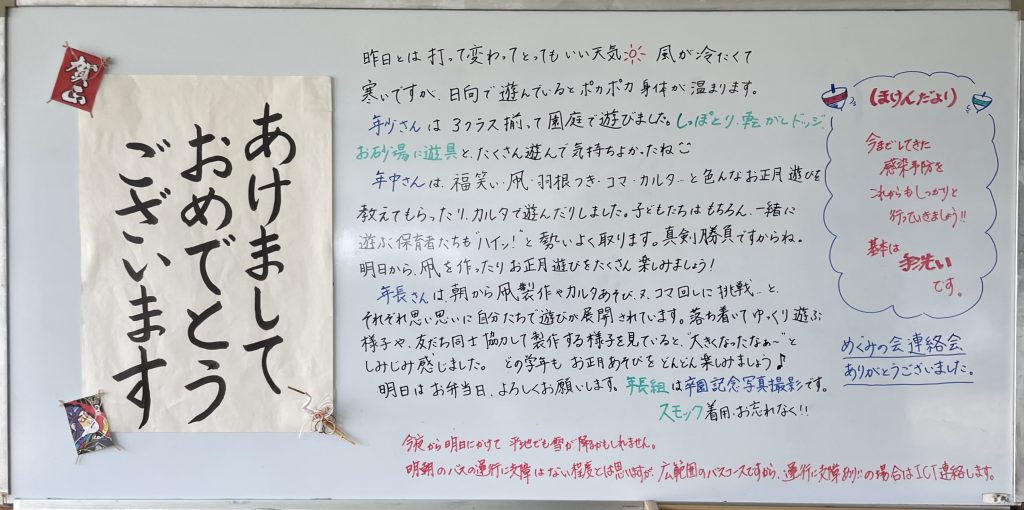 賀正
あけまして
おめでとう
ございます
昨日とは打って変わってとってもいい天気 風が冷たくて
寒いですが、日向で遊んでいるとポカポカ身体が温まります。
年少さんは3クラス揃って園庭で遊びました。しっぽとり、転がしドッジ、
お砂場に遊具と、たくさん遊んで気持ちよかったね
年中さんは、福笑い・凧・羽根つき・コマ・カルタ…と色んなお正月遊びを
教えてもらったり、カルタで遊んだりしました。子どもたちはもちろん、一緒に
遊ぶ保育者たちも"ハイッ!"と勢いよく取ります。真剣勝負ですからね。
明日から、凧を作ったりお正月遊びをたくさん楽しみましょう!
年長さんは、朝から凧製作やカルタあそび、又、コマ回しに挑戦…と、
それぞれ思い思いに自分たちで遊びが展開されています。落ち着いてゆっくり遊ぶ
様子や、友だち同士協力して製作する様子を見ていると、"大きくなったなぁ〜"と
しみじみ感じました。 どの学年も お正月あそびをどんどん楽しみましょう♪
明日はお弁当日、よろしくお願いします。年長組は卒園記念写真撮影です。
スモック着用、お忘れなく!!
今夜から明日にかけて 平地でも雪が降るかもしれません。
明朝のバスの運行に支障はない程度とは思いますが、広範囲のバスコースですから、運行に支障ありの場合はICT連絡します。
(ほけんだより)
今までしてきた
感染予防を
これからもしっかりと
行っていきましょう!!
基本は
手洗い
です。
めぐみの会連絡会
ありがとうございました。